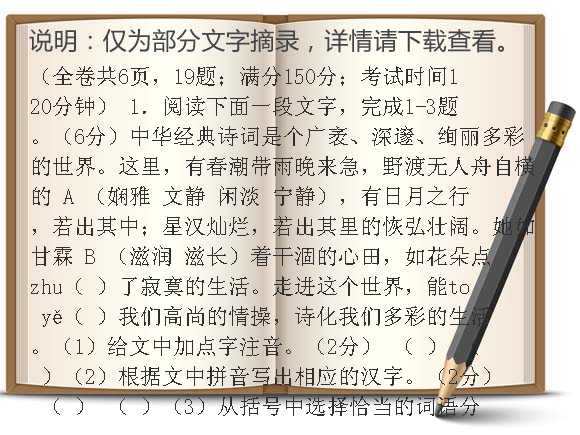 说明：仅为部分文字摘录，详情请下载查看。
（全卷共6页，19题；满分150分；考试时间1
20分钟） 1．阅读下面一段文字，完成1-3题
。（6分）中华经典诗词是个广袤、深邃、绚丽多彩
的世界。这里，有春潮带雨晚来急，野渡无人舟自横
的 A （娴雅 文静 闲淡 宁静），有日月之行
，若出其中；星汉灿烂，若出其里的恢弘壮阔。她如
甘霖 B （滋润 滋长）着干涸的心田，如花朵点
zhu（ ）了寂寞的生活。走进这个世界，能to
yě（ ）我们高尚的情操，诗化我们多彩的生活
。（1）给文中加点字注音。（2分） （ ）（
）（2）根据文中拼音写出相应的汉字。（2分）
（ ） （ ）（3）从括号中选择恰当的词语分